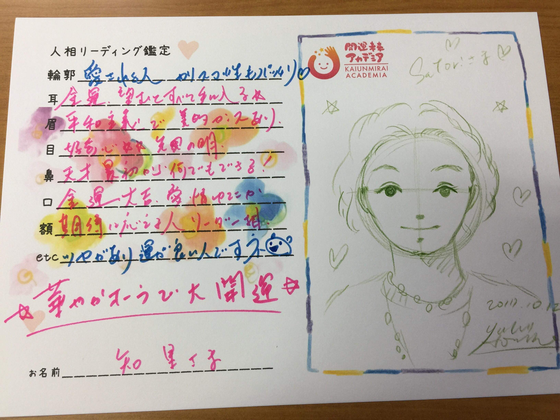 人相リーディング鑑定
輪郭 愛される人 カリスマ性もバッチリ♡
耳 金運、望むとすべて手に入る
眉 平和主義で 美的センスあり
目 好奇心 先見の明
鼻 天才 最初から何でもできる!
口 金運 大吉、愛情ゆたか
額 期待に応える人 リーダー相
etc ツヤがあり運が良い人です
☆華やかオーラで大開運☆
お名前
開運未来
アカデミア
KAIUNMIRAI
ACADEMIA
Satoriこ